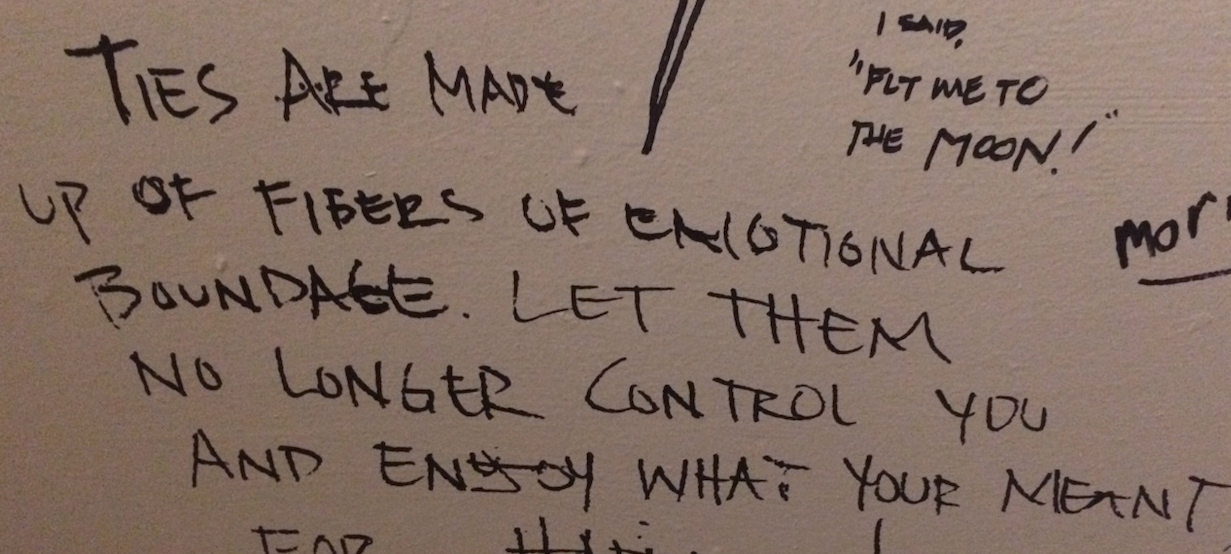 TIES ARE MADE
UP OF FIBERS OF EMOTIONAL
BOUNDAGE. LET THEM
NO LONGER CONTROL YOU
AND ENJOY WHAT YOUR MEANT
FOR
I SAID,
"FLY ME TO
THE MOON!"
mor